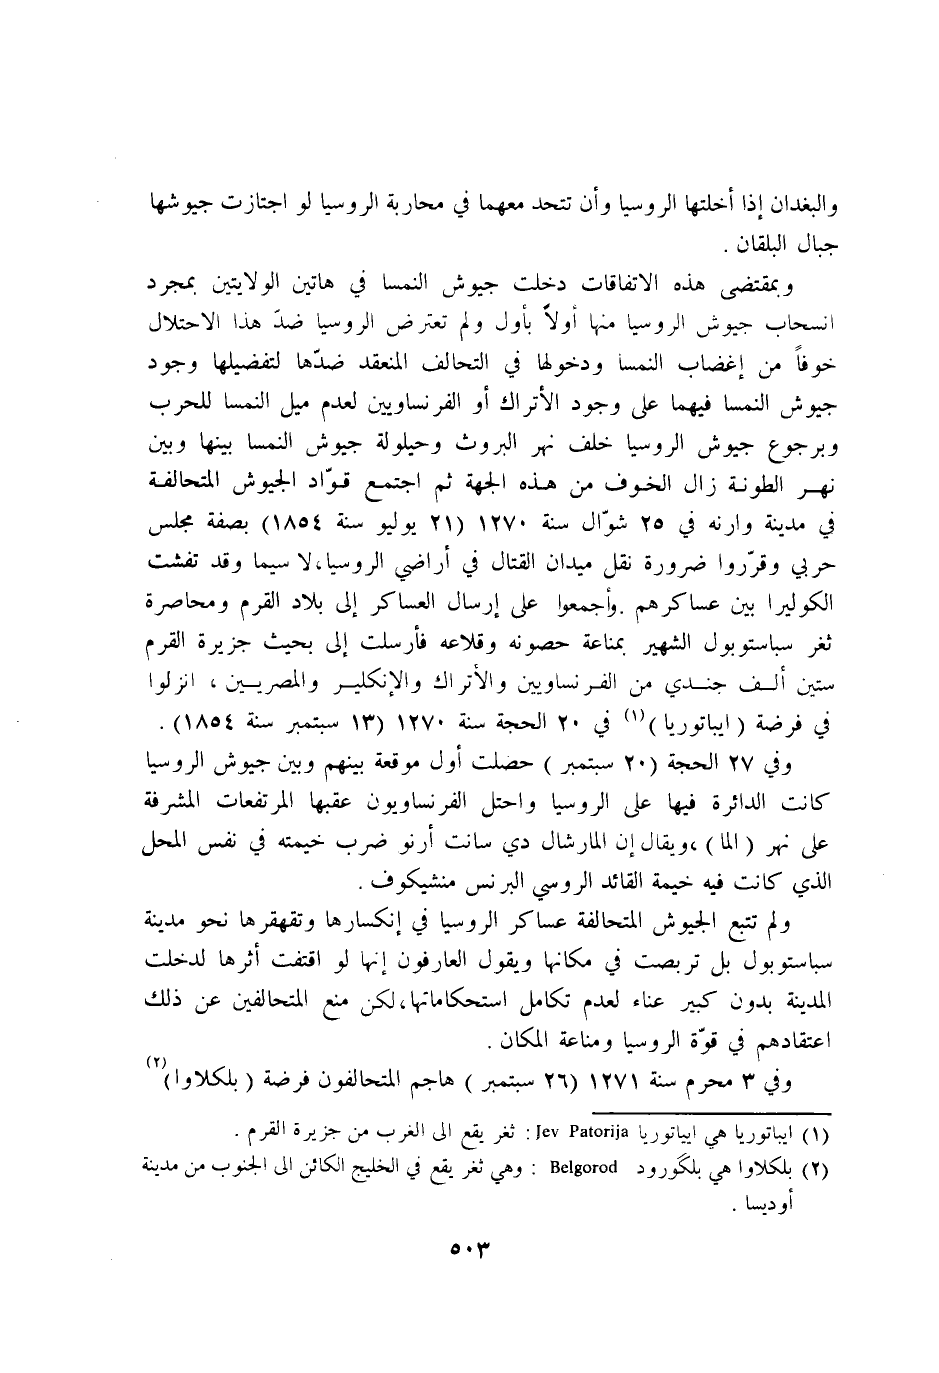 والبغدان إذا أخلتها الروسيا وأن تتحد معهما في محاربة الروسيا لو اجتازت جيوشها
جبال البلقان .
وبمقتضى هذه الاتفاقات دخلت جيوش النمسا في هاتين الولايتين بمجرد
انسحاب جيوش الروسيا منها أولاً بأول ولم تعترض الروسيا ضدّ هذا الاحتلال
خوفاً من إغضاب النمسا ودخولها في التحالف المنعقد ضدّها لتفضيلها وجود
جيوش النمسا فيهما على وجود الأتراك أو الفرنساويين لعدم ميل النمسا للحرب
وبرجوع جيوش الروسيا خلف نهر البروث وحيلولة جيوش النمسا بينها وبين
نهر الطونة زال الخوف من هذه الجهة ثم اجتمع قوّاد الجيوش المتحالفة
في مدينة وارنه في ٢٥ شوّال سنة ١٢٧٠ (٢١ يوليو سنة ١٨٥٤) بصفة مجلس
حربي وقرّروا ضرورة نقل ميدان القتال في أراضي الروسيا،لا سيما وقد تفشت
الكوليرا بين عساكرهم .وأجمعوا على إرسال العساكر إلى بلاد القرم ومحاصرة
ثغر سباستوبول الشهير بمناعة حصونه وقلاعه فأرسلت إلى بحيث جزيرة القرم
ستين ألف جندي من الفرنساويين والأتراك والإنكليز والمصريين ، انزلوا
في فرضة ( ايباتوريا )(١) في ٢٠ الحجة سنة ١٢٧٠ (١٣ سبتمبر سنة ١٨٥٤) .
وفي ٢٧ الحجة (٢٠ سبتمبر ) حصلت أول موقعة بينهم وبين جيوش الروسيا
كانت الدائرة فيها على الروسيا واحتل الفرنساويون عقبها المرتفعات المشرفة
على نهر ( الما ) ،ويقال إن المارشال دي سانت أرنو ضرب خيمته في نفس المحل
الذي كانت فيه خيمة القائد الروسي البرنس منشيكوف .
ولم تتبع الجيوش المتحالفة عساكر الروسيا في إنكسارها وتقهقرها نحو مدينة
سباستوبول بل تربصت في مكانها ويقول العارفون إنها لو اقتفت أثرها لدخلت
المدينة بدون كبير عناء لعدم تكامل استحكاماتها،لكن منع المتحالفين عن ذلك
اعتقادهم في قوّة الروسيا ومناعة المكان .
وفي ٣ محرم سنة ١٢٧١ (٢٦ سبتمبر ) هاجم المتحالفون فرضة ( بلكلاوا )(٢)
(١) ايباتوريا هي ايباتوريا Jev Patorija : ثغر يقع الى الغرب من جزيرة القرم .
(٢) بلكلاوا هي بلگورود Belgorod : وهي ثغر يقع في الخليج الكائن الى الجنوب من مدينة
أوديسا .
٥٠٣